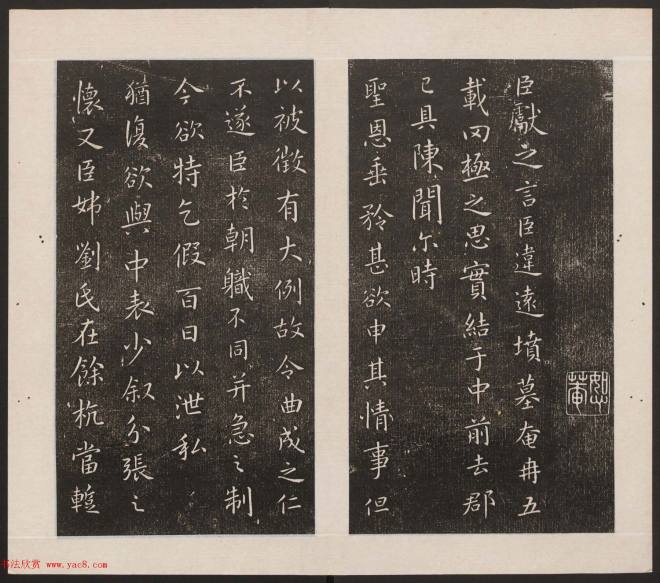 臣獻之言臣違遠墳墓奄冉五
載罔極之思實結于中前去郡
已具陳聞尓時
聖恩垂矜甚欲申其情事但
以被徵有大例故令曲成之仁
不遂臣於朝職不同并急之制
今欲特乞假百日以泄私
猶復欲與中表少叙分張之
懷又臣姊劉氏在餘杭當蹔
书法欣赏 www.yac8.com